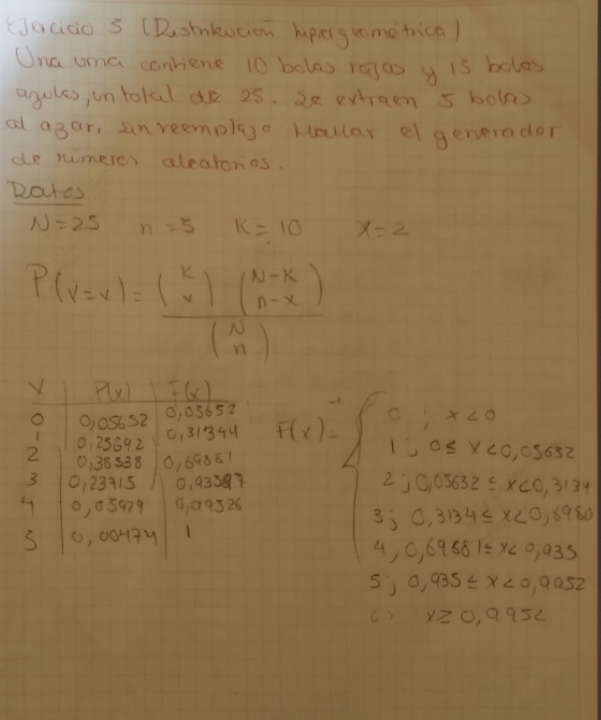 Ejercicio 5 (Distribución hipergeométrica)
Una urna contiene 10 bolas rojas y 15 bolas
azules, un total de 25. Se extraen 5 bolas
al azar, sin reemplazo Hallar el generador
de números aleatorios.
Datos
N=25 n=5 K=10 X=2
P(X=x) = (K x) (N-K n-x)
(N n)
X P(x) F(x)
0 0,05652 0,05652
1 0,25692 0,31344
2 0,38538 0,69881
3 0,23715 0,93597
4 0,05929 0,99526
5 0,00474 1
F(x)⁻¹ =
0 ; x<0
1 ; 0≤ x<0,05632
2 ; 0,05632 ≤ x<0,3134
3 ; 0,3134 ≤ x<0,6980
4 ; 0,69881≤ x< 0,935
5 ; 0,935 ≤ x<0,9952
x≥ 0,9952